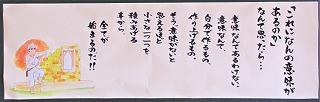 「これになんの意味が
あるのか」
なんて思たら…
意味なんてあるわけない。
意味なんて
自分で作るもの。
作り上げるもの。
そう、意味がないと
思えるほど
小さな一つ一つを
積みあげる
事から、
全てが
始まるのだ!!